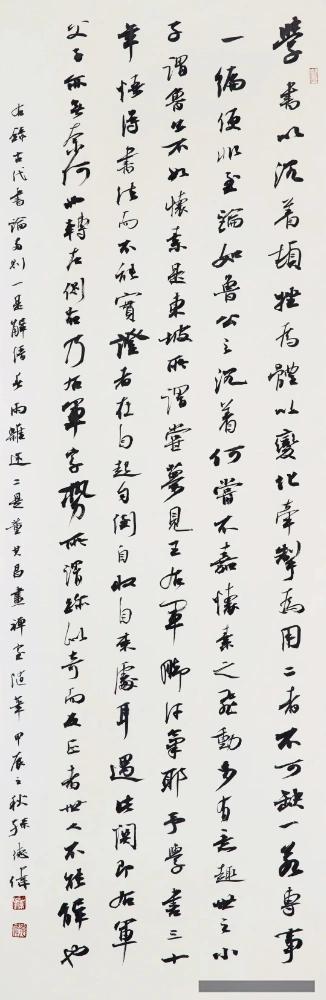 學書以沉着頓挫為體以變化牽掣為用二者不可缺一若專事
一偏便非至論如魯公之沉着何嘗不嘉懷素之飛動多有意趣世之小
子謂魯公不如懷素是東坡所謂嘗夢見王右軍腳汗氣耶予學書三十
年悟得書法而不能實證者在自起自倒自收自束處耳過此關即右軍
父子亦無奈何也轉左側右乃右軍字勢所謂跡似奇而反正者世人不能解也
右錄古代書論兩則一是解縉春雨雜述二是董其昌畫禪室隨筆甲辰之秋孫德偉